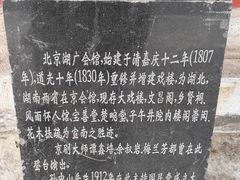 北京湖广会馆,始建于清嘉庆十二年(1807
年),道光十年(1830年)重修并增建戏楼,为湖北、
湖南两省在京会馆,现存大戏楼、文昌阁、乡贤祠、
风雨怀人馆、宝善堂、楚畹堂、子午井,院内楼阁崇闳,
花木扶疏为宣南之胜迹。
京剧大师谭鑫培、余叔岩、梅兰芳都曾在此
登台演出。
孙中山先生1912年在此主持